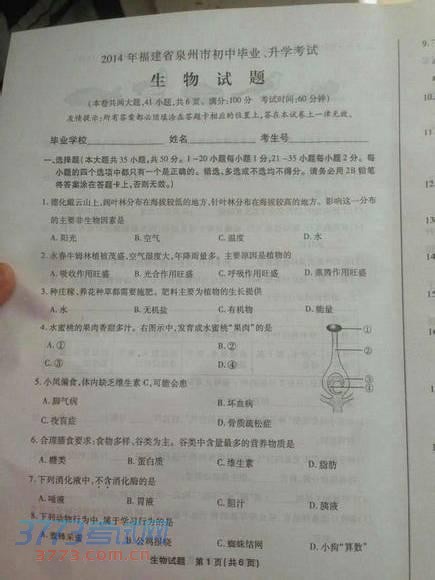 2014年福建省泉州市初中毕业、升学考试
生 物 试 题
(本卷共两大题,41小题,共6页。满分:100分 考试时间:60分钟)
友情提示:所有答案都必须填涂在答题卡相应的位置上,答在本试卷上一律无效。
毕业学校 姓名 考生号
一、选择题(本大题共35小题,共50分。1~20小题每小题1分,21~35小题每小题2分。每
小题的四个选项中都只有一个是正确的。错选、多选或不选均不得分。请务必用2B铅笔
将答案涂在答题卡上,否则无效。)
1.德化戴云山上,阔叶林分布在海拔较低的地方,针叶林分布在海拔较高的地方。影响这一分布
的主要非生物因素是
A.阳光 B.空气 C.温度 D.水
2.永春牛姆林植被茂盛,空气湿度大,年降雨量多。主要原因是植物的
A.吸收作用旺盛 B.光合作用旺盛 C.呼吸作用旺盛 D.蒸腾作用旺盛
3.种庄稼、养花种草都需要施肥。肥料主要为植物的生长提供
A.水 B.无机盐 C.有机物 D.能量
4.水蜜桃的果肉香甜多汁。右图示中,发育成水蜜桃“果肉”的是
A.① B.②
C.③ D.④
①
②
③
④
5.小凤偏食,体内缺乏维生素C,可能会患
A.脚气病 B.坏血病
C.夜盲症 D.骨质疏松症
6.合理膳食要求:食物多样、谷类为主。谷类中含量最多的营养物质是
A.糖类 B.蛋白质 C.维生素 D.脂肪
7.下列消化液中,不含消化酶的是
A.唾液 B.胃液 C.胆汁 D.胰液
8.下列动物行为中,属于学习行为的是
A.蜜蜂采蜜 B.公鸡报晓 C.蜘蛛结网 D.小狗“算数”
生物试题 第1页(共6页)
3773考试网
www.3773.com.cn
9.
10